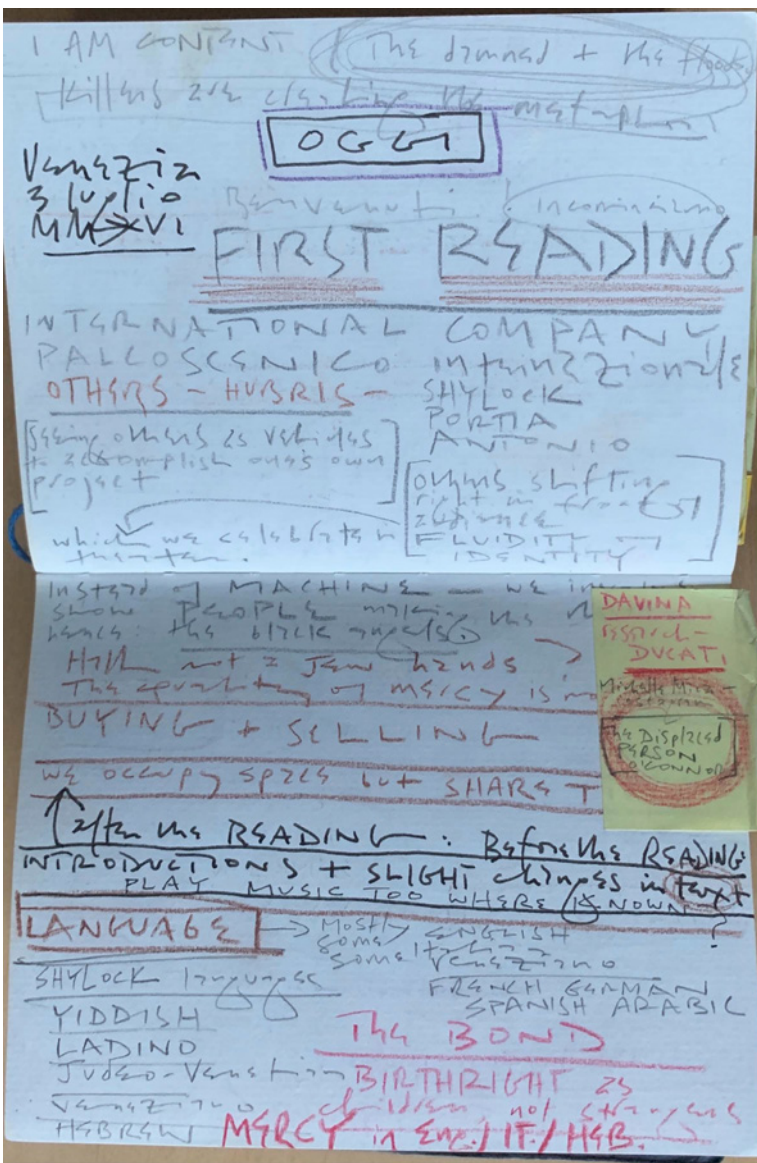 I AM CONTENT
The damned + the
Killers are
OGGI
Venezia
3 luglio
MMXVI
Benvenuti. incominciano
FIRST READING
INTERNATIONAL COMPANY
PALCOSCENICO internazionale
OTHERS - HUBRIS -
SHYLOCK
PORTIA
ANTONIO
[seeing others as vehicles
to accomplish one's own
project]
[others shifting
right in front of
audience
FLUIDITY of
IDENTITY]
which we celebrate in
theater.
Instead of MACHINE - we
show PEOPLE making the
hence: the black angels.
Hath not a Jew hands
The quality of mercy is no
BUYING + SELLING
we occupy space but SHARE T
DAVINA
research-
DUCATI
Michelle
The Displaced
PERSON
O'CONNOR
after the READING: Before the READING:
INTRODUCTIONS + SLIGHT changes in text
PLAY MUSIC TOO WHERE KNOWN?
LANGUAGE → Mostly ENGLISH
some Italian
some Veneziano
FRENCH GERMAN
SPANISH ARABIC
SHYLOCK languages
YIDDISH
LADINO
Judeo-Venetian
Veneziano
HEBREW
The BOND
BIRTHRIGHT as
children, not strangers
MERCY in ENG./IT./HEB.